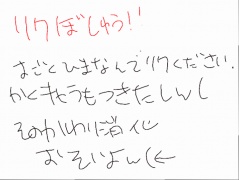 リクぼしゅう!!
まごとひまなんでリクください.
かくきょうもつきたしん(
そのかわり消化
おそいよん(←